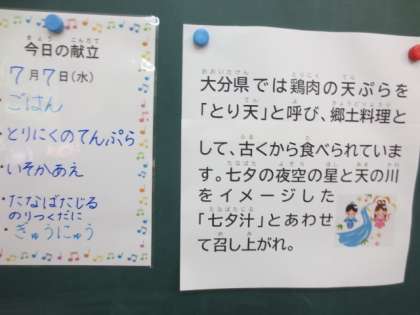 今日の献立
7月7日(水)
・ごはん
・とりにくのてんぷら
・いそかあえ
・たなばたじる
のりつくだに
・ぎゅうにゅう
大分県では鶏肉の天ぷらを
「とり天」と呼び、郷土料理と
して、古くから食べられていま
す。七夕の夜空の星と天の川
をイメージした
「七夕汁」とあわせ
て召し上がれ。